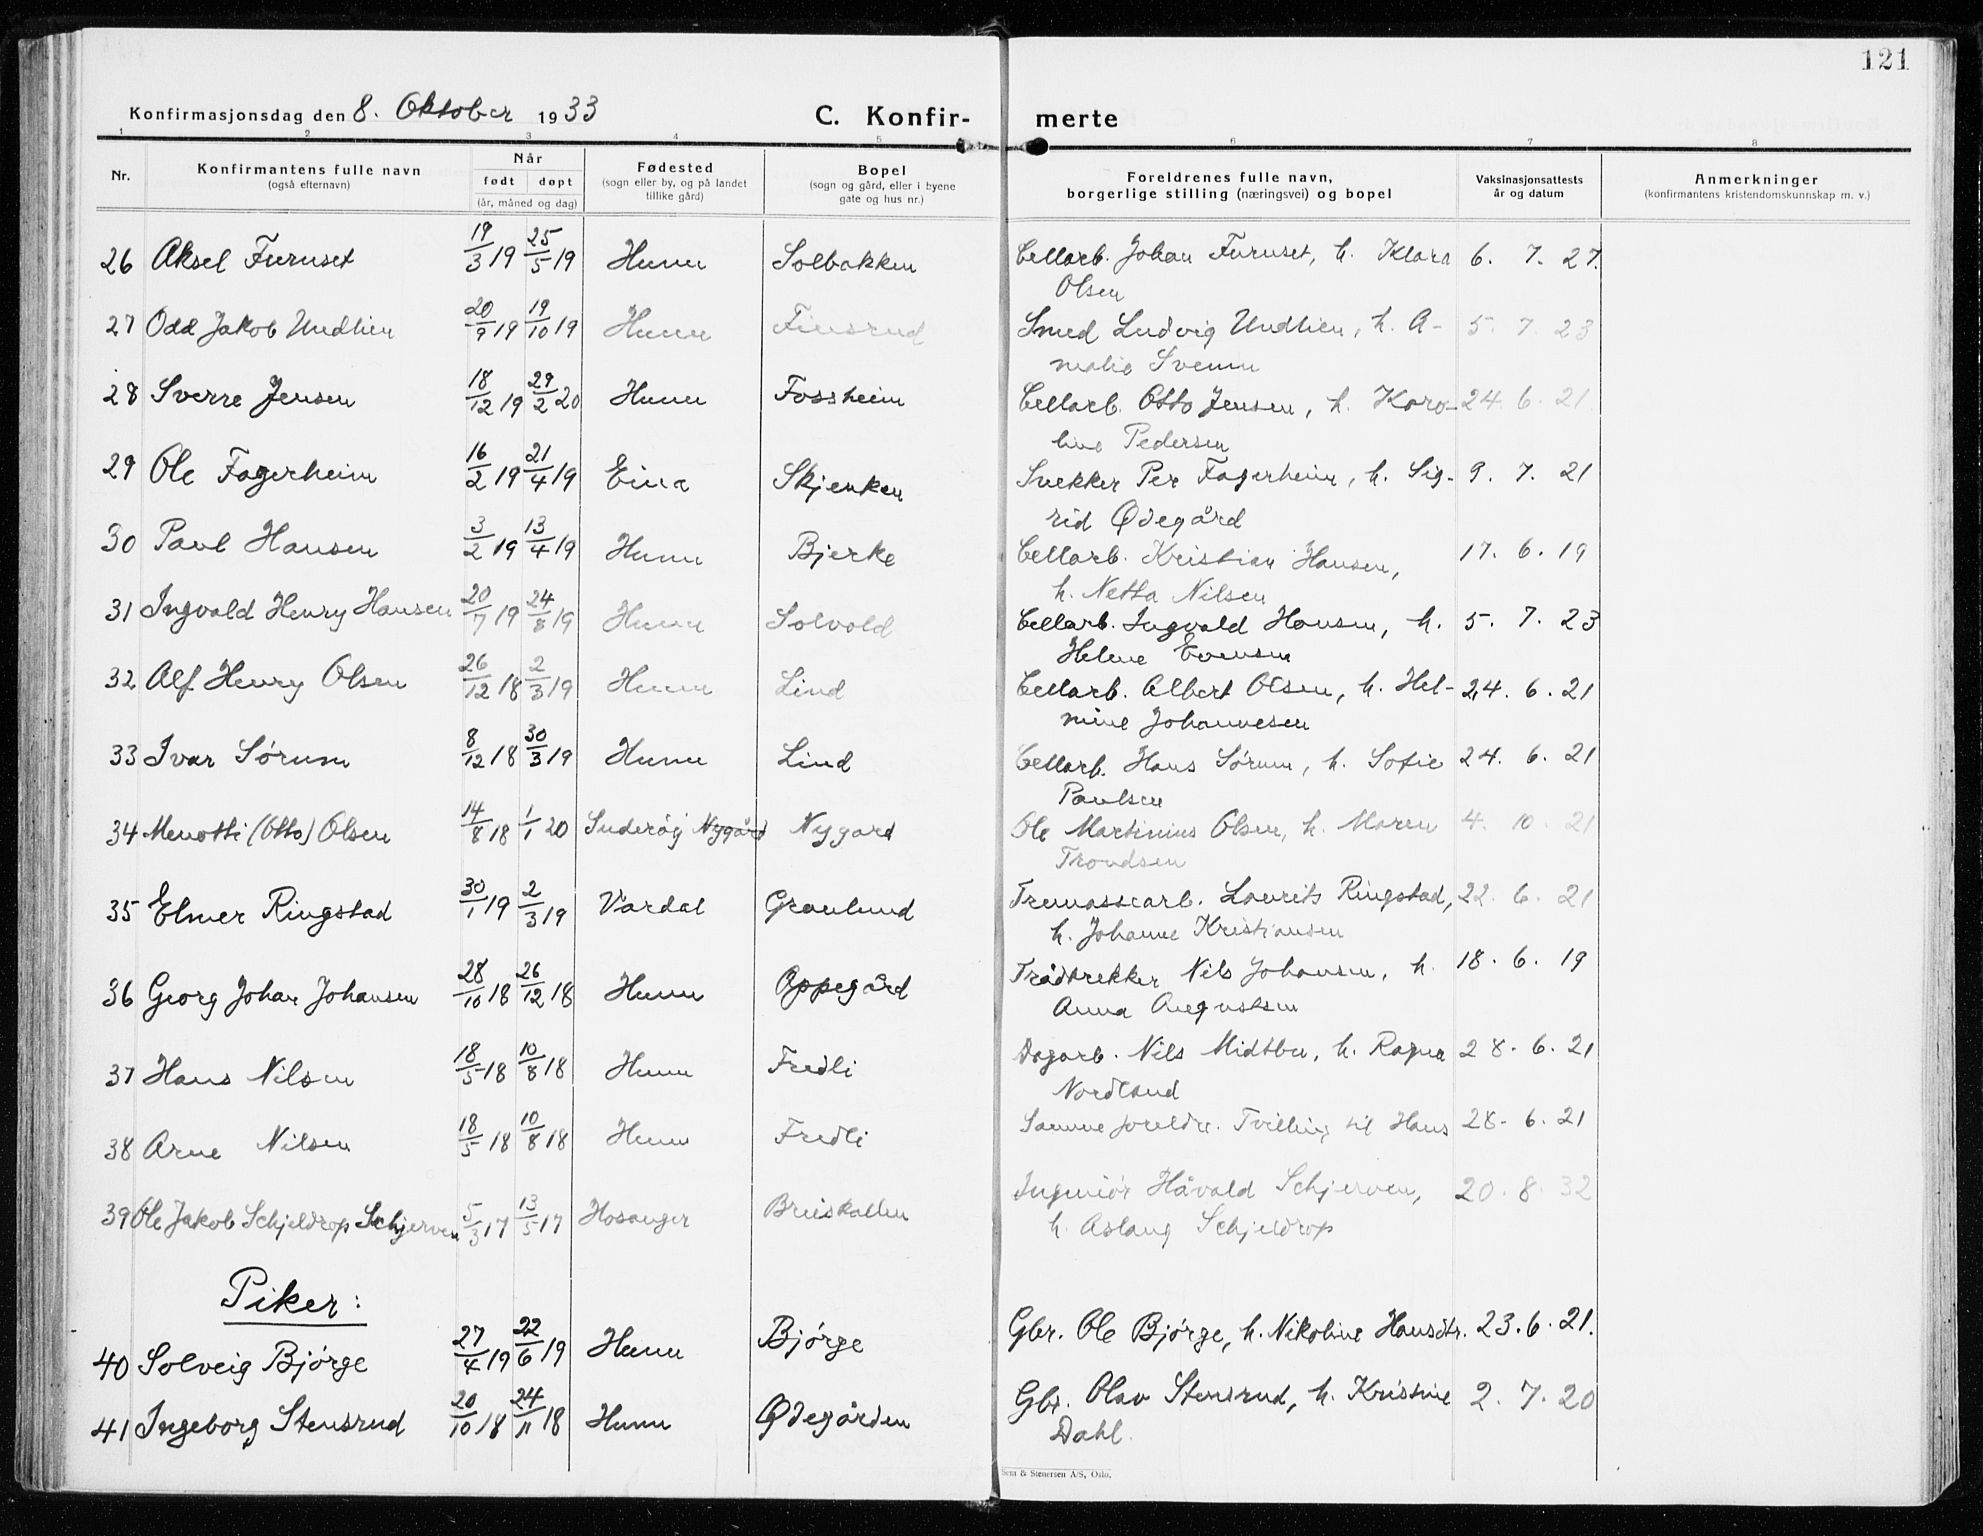 121
Konfirmasjonsdag den 8. Oktober 1933 C. Konfir- merte
1 2 3 4 5 6 7 8
Nr. Konfirmantens fulle navn (også efternavn) Når født døpt (år, måned og dag) Fødested (sogn eller by, og på landet tillike gård) Bopel (sogn og gård, eller i byene gate og hus nr.) Foreldrenes fulle navn, borgerlige stilling (næringsvei) og bopel Vaksinasjonsattests år og datum Anmerkninger (konfirmantens kristendomskunnskap m. v.)
26 Aksel Furuset 19/3 19 25/5 19 Hunn Solbakken Cellarb. Johan Furuset, h. Klara 6. 7. 27.
Olsen
27 Odd Jakob Undlien 20/9 19 19/10 19 Hunn Finsrud Smed Ludvig Undlien, h. A- 5. 7. 23
malie Svenn
28 Sverre Jensen 18/12 19 29/2 20 Hunn Fossheim Cellarb. Otto Jensen, h. Karo- 24. 6. 21
line Pedersen
29 Ole Fagerheim 16/2 19 21/4 19 Eina Skjenken Snekker Per Fagerheim, h. Sig- 9. 7. 21
rid Ødegård
30 Paul Hansen 3/2 19 13/4 19 Hunn Bjerke Cellarb. Kristian Hansen, 17. 6. 19
h. Netta Nilsen
31 Ingvald Henry Hansen 20/7 19 24/8 19 Hunn Solvold Cellarb. Ingvald Hansen, h. 5. 7. 23
Helene Evensen
32 Alf Henry Olsen 26/12 18 2/3 19 Hunn Lind Cellarb. Albert Olsen, h. Hel- 24. 6. 21
mine Johannesen
33 Ivar Sørum 8/12 18 30/3 19 Hunn Lind Cellarb. Hans Sørum, h. Sofie 24. 6. 21
Paulsen
34 Menotti (Otto) Olsen 14/8 18 1/1 20 Suderøy Nygård Nygard Ole Martinius Olsen, h. Maren 4. 10. 21
Trondsen
35 Elmer Ringstad 30/1 19 2/3 19 Vardal Granlund Tremassearb. Laurits Ringstad, 22. 6. 21
h. Johanne Kristiansen
36 Georg Johan Johansen 28/10 18 26/12 18 Hunn Oppegård Trådtrekker Nils Johansen, h. 18. 6. 19
Anna Augustsen
37 Hans Nilsen 18/5 18 10/8 18 Hunn Fredli Dagarb. Nils Midtbu, h. Ragna 28. 6. 21
Nordland
38 Arne Nilsen 18/5 18 10/8 18 Hunn Fredli Samme foreldre. Tvilling til Hans 28. 6. 21
39 Ole Jakob Schjeldrop Schjerven 5/3 17 13/5 17 Hosanger Breiskallen Ingeniör Håvald Schjerven, 20. 8. 32
h. Aslaug Schjeldrop
Piker:
40 Solveig Bjørge 27/4 19 22/6 19 Hunn Bjørge Gbr. Ole Bjørge, h. Nikoline Hansdtr. 23. 6. 21.
41 Ingeborg Stensrud 20/10 18 24/11 18 Hunn Ødegården Gbr. Olav Stensrud, h. Kristine 2. 7. 20
Dahl.
Sem & Stenersen A/S, Oslo.